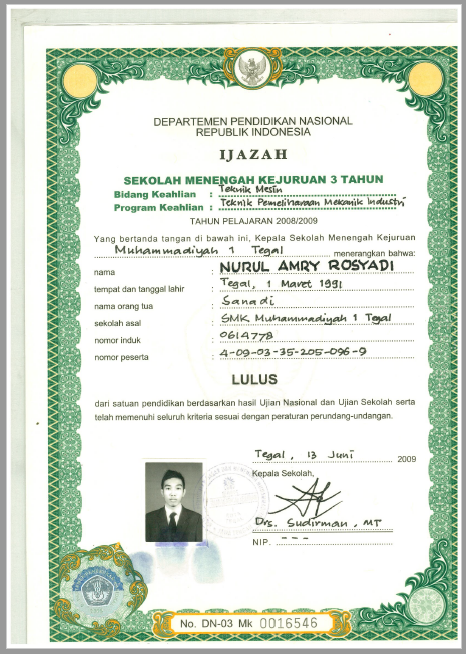 DEPARTEMEN PENDIDIKAN NASIONAL
REPUBLIK INDONESIA
IJAZAH
SEKOLAH MENENGAH KEJURUAN 3 TAHUN
Bidang Keahlian : Teknik Mesin
Program Keahlian : Teknik Pemeliharaan Mekanik Industri
TAHUN PELAJARAN 2008/2009
Yang bertanda tangan di bawah ini, Kepala Sekolah Menengah Kejuruan
Muhammadiyah 1 Tegal menerangkan bahwa:
nama : NURUL AMRY ROSYADI
tempat dan tanggal lahir : Tegal, 1 Maret 1991
nama orang tua : Sanadi
sekolah asal : SMK Muhammadiyah 1 Tegal
nomor induk : 0614778
nomor peserta : 4-09-03-35-205-096-9
LULUS
dari satuan pendidikan berdasarkan hasil Ujian Nasional dan Ujian Sekolah serta
telah memenuhi seluruh kriteria sesuai dengan peraturan perundang-undangan.
Tegal, 13 Juni 2009
Kepala Sekolah,
Drs. Sudirman, MT
NIP. ---
No. DN-03 Mk 0016546